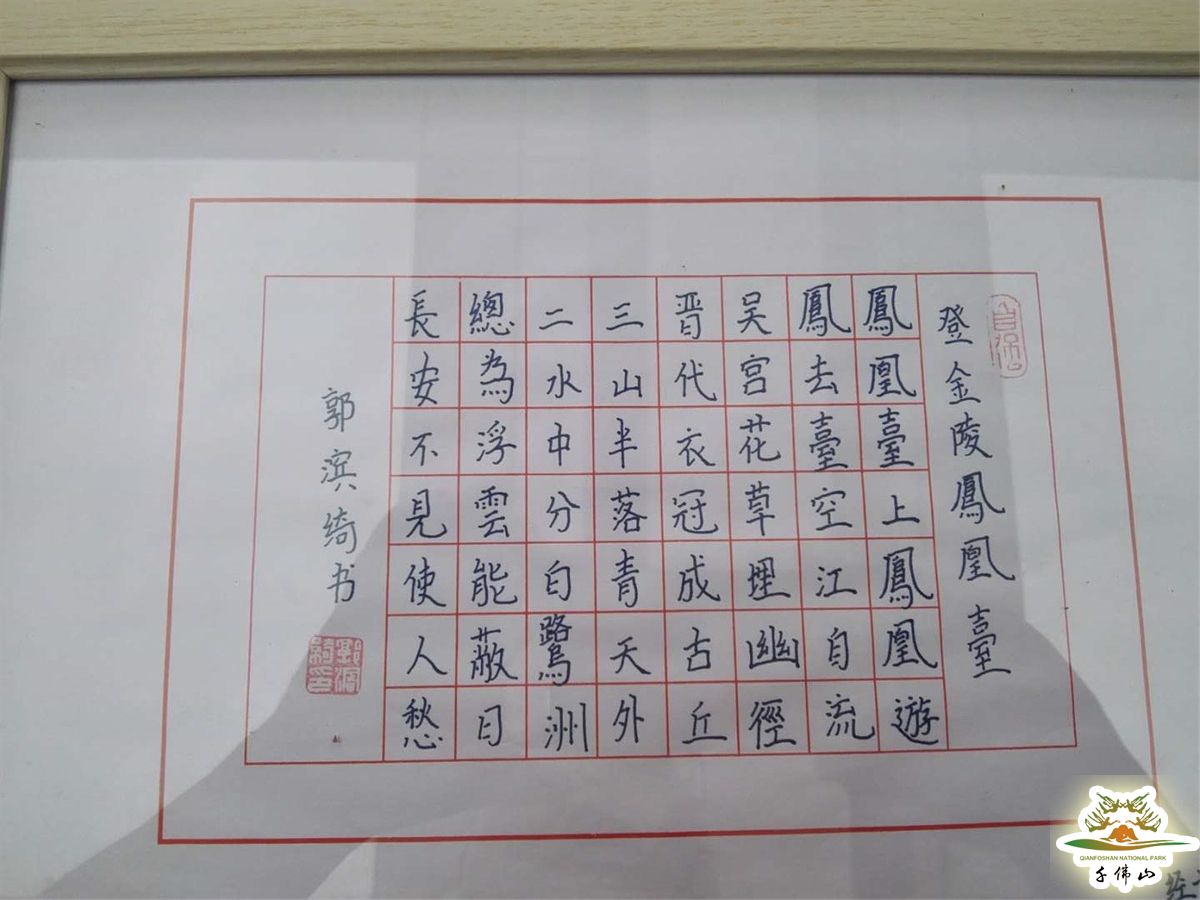 登金陵鳳凰臺
鳳凰臺上鳳凰遊
鳳去臺空江自流
吴宫花草埋幽徑
晋代衣冠成古丘
三山半落青天外
二水中分白鷺洲
總為浮雲能蔽日
長安不見使人愁
郭滨绮书
QIANFOSHAN NATIONAL PARK
千佛山